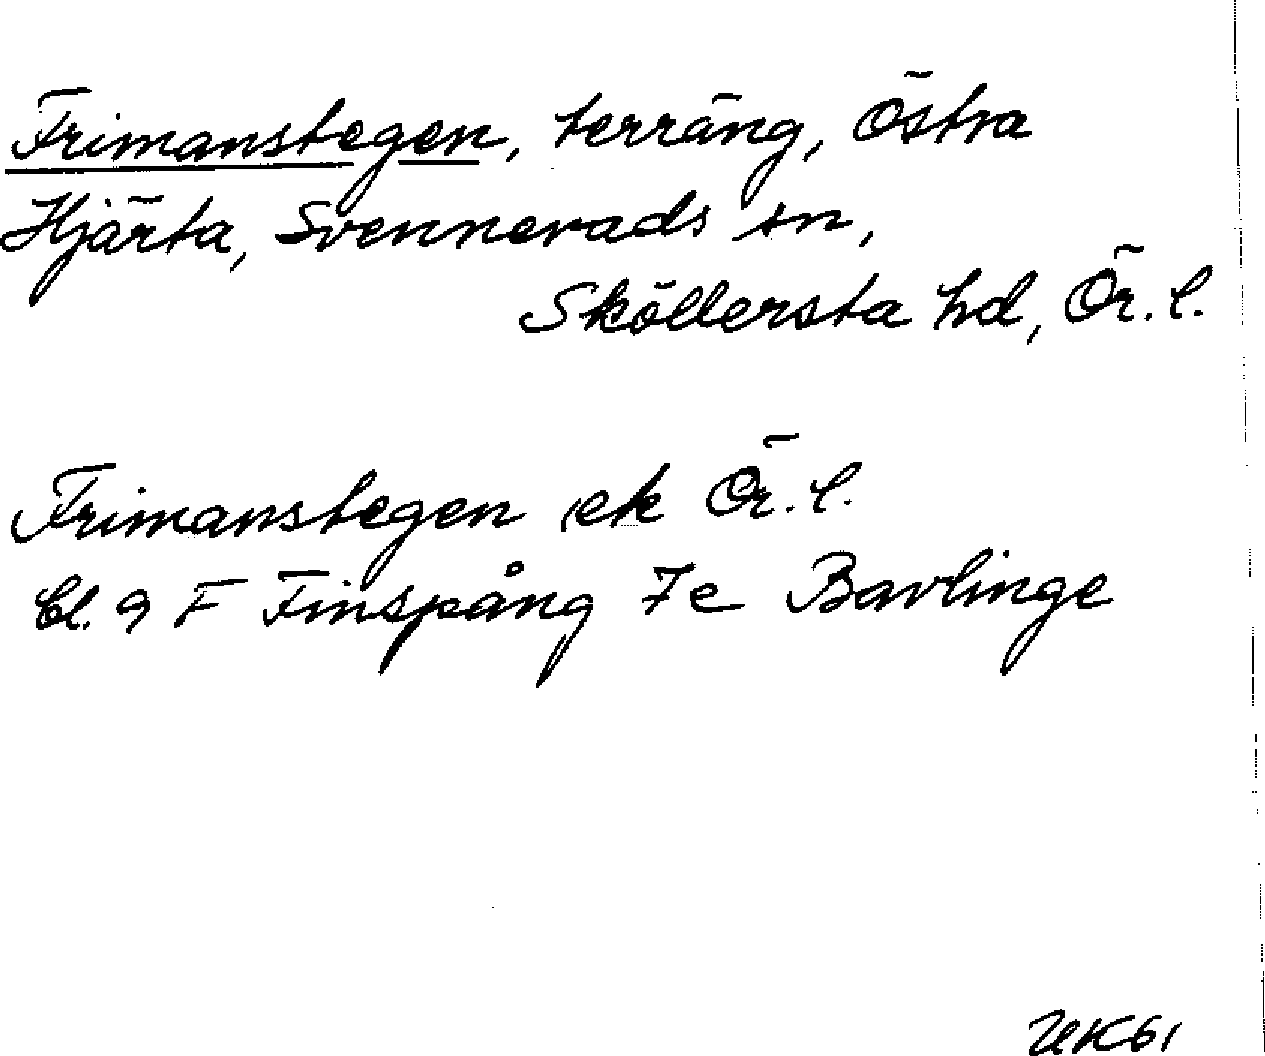 Frimanstegen, terräng, Östra
Hjärta, Svennevads sn,
Sköllersta hd, Ör. l.
Frimanstegen ek Ör. l.
bl. 9 F Finspång 7e Bavlinge
UK61